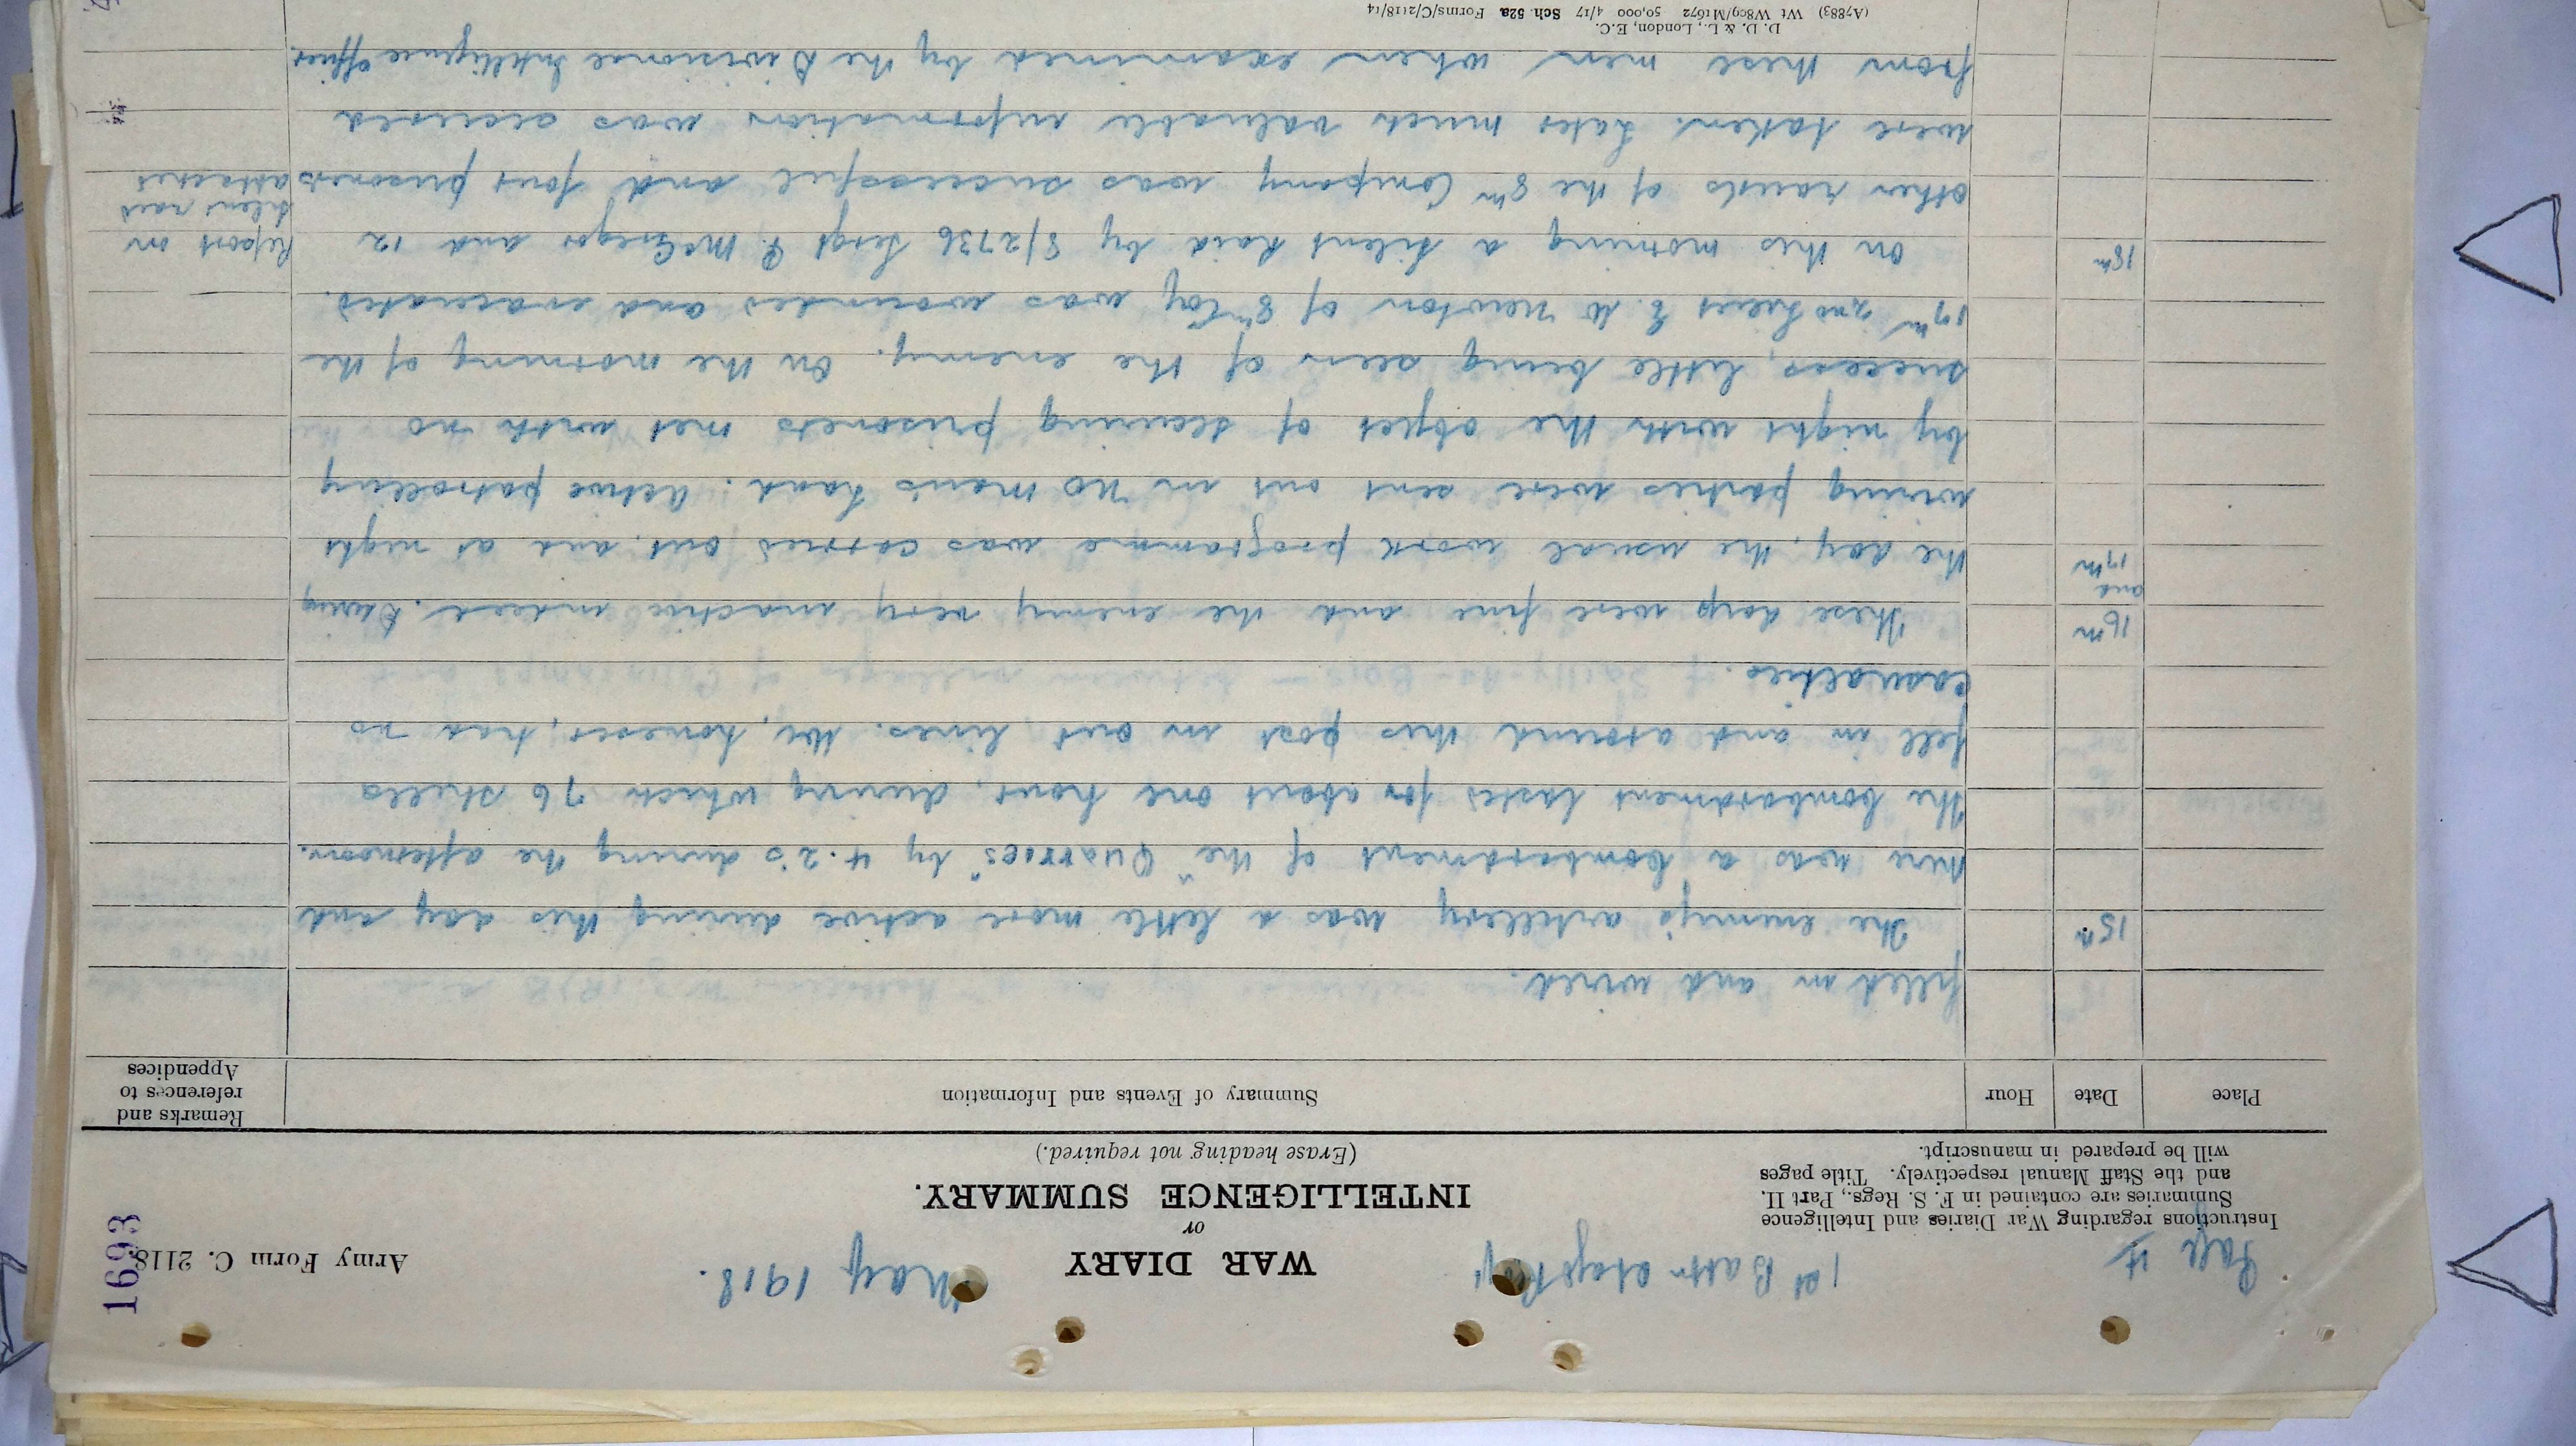 Page 4
1st Battn Otago Regt
May 1918.
Army Form C. 2118.
1693
WAR DIARY
or
INTELLIGENCE SUMMARY.
(Erase heading not required.)
Instructions regarding War Diaries and Intelligence
Summaries are contained in F. S. Regs., Part II.
and the Staff Manual respectively. Title pages
will be prepared in manuscript.
Place
Date
Hour
Summary of Events and Information
Remarks and
references to
Appendices
filled in and wired.
15th The enemy's artillery was a little more active during this day and
there was a bombardment of the "Quarries" by 4.2's during the afternoon.
The bombardment lasted for about one hour, during which 76 shells
fell in and around this post in our lines. We, however, had no
casualties.
16th These days were fine and the enemy very inactive indeed. During
and
17th
the day, the usual work programme was carried out, and at night
wiring parties were sent out in No Man's Land. Active patrolling
by night with the object of securing prisoners met with no
success, little being seen of the enemy. On the morning of the
17th 2nd Lieut E. W Newton of 8th Coy was wounded and evacuated.
18th On this morning a silent Raid by 8/2736 Sergt P. McGregor and 12 Report on
silent raid
other ranks of the 8th Company was successful and four prisoners attached
were taken. Later much valuable information was accrued
from these men when examined by the Divisional Intelligence Officer.
D. D. & L., London, E.C.
(A7883) Wt W809/M1672 50,000 4/17 Sch. 52a Forms/C/2118/14